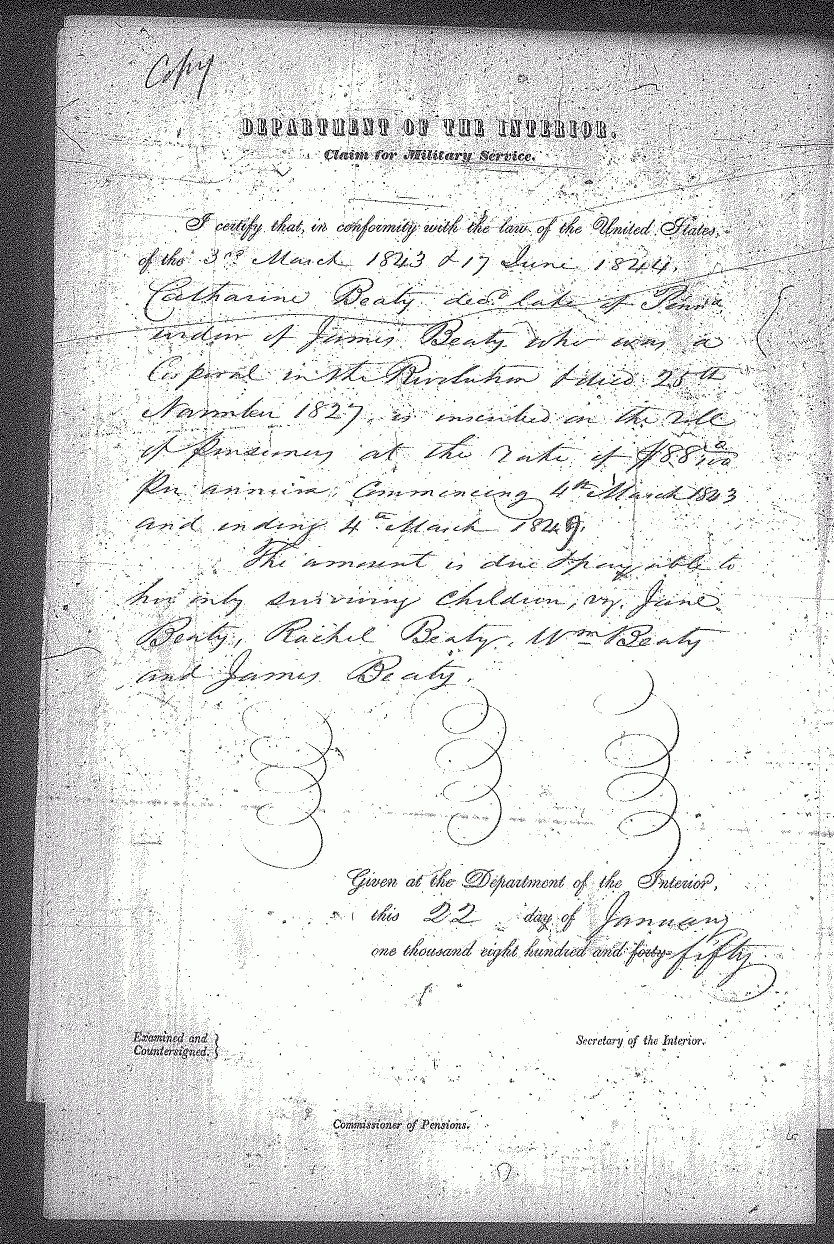 Copy
DEPARTMENT OF THE INTERIOR.
Claim for Military Service.
I certify that, in conformity with the law of the United States,
of the 3rd March 1843 & 17 June 1844.
Catharine Beaty decd. late of Penna
widow of James Beaty who was a
Corporal in the Revolution & died 25th
November 1827, is inscribed on the roll
of pensioners at the rate of $88
per annum, commencing 4th March 1843
and ending 4th March 1849.
The amount is due & payable to
her only surviving children, viz. Jane
Beaty, Rachel Beaty, Wm Beaty
and James Beaty.
Given at the Department of the Interior,
this 22 day of January
one thousand eight hundred and forty- fifty
Examined and
Countersigned.
Secretary of the Interior.
Commissioner of Pensions.